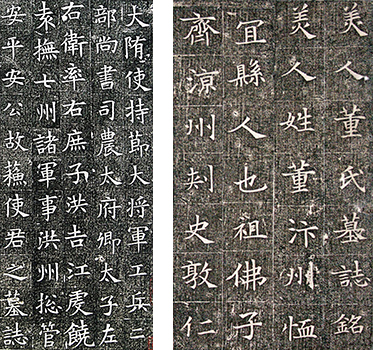 大隋使持節大将軍工兵二
部尚書司農太府卿太子左
右衛率右庶子洪吉江虔饒
袁撫七州諸軍事洪州捴管
安平安公故蘇使君之墓誌
美人董氏墓誌銘
美人姓董汴州恤
宜縣人也祖佛子
齊涼州刺史敦仁